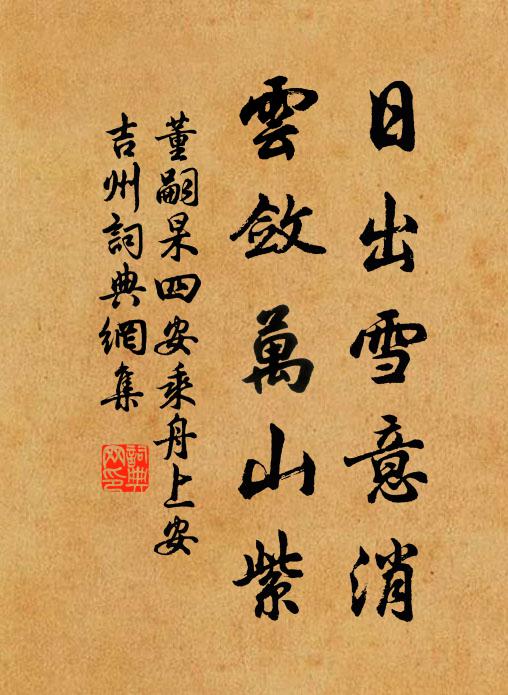 日出雪意消
雲斂萬山紫
董嗣杲四安乘舟上安
吉州詞典網集
詞典網印